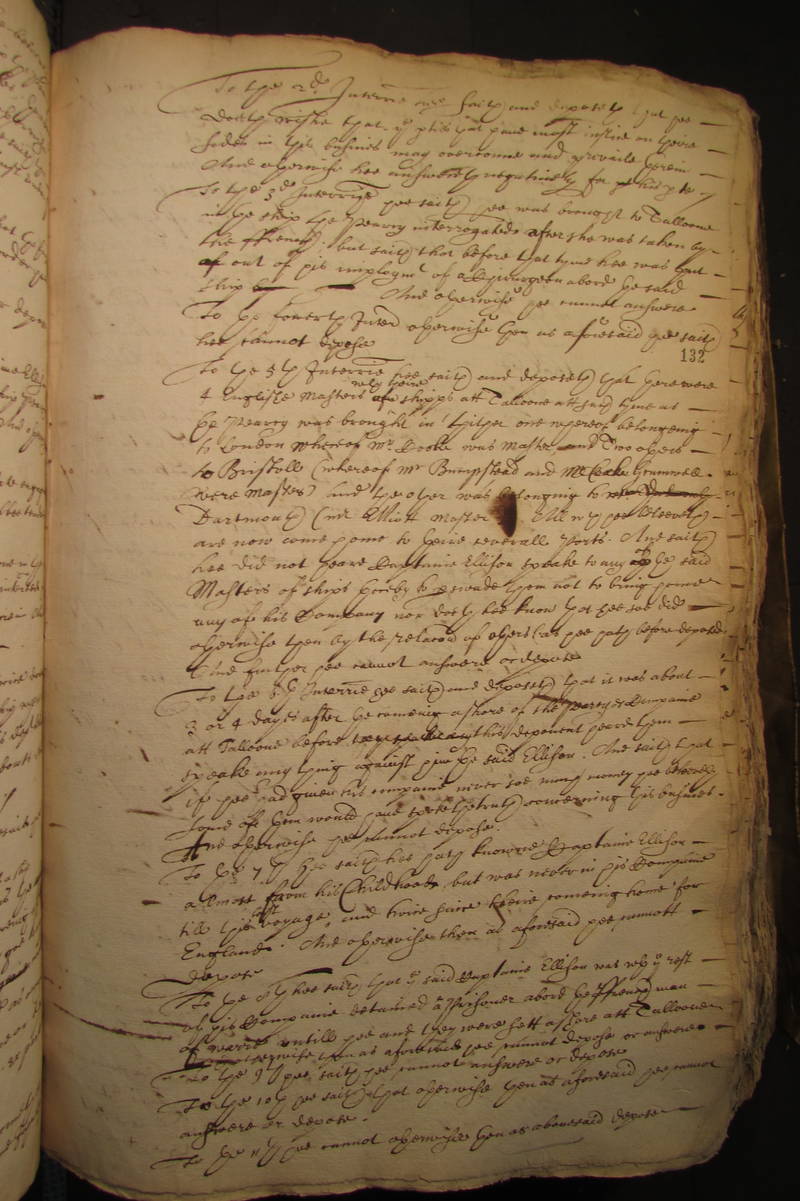 To the 2d. Interrie hee saith and deposeth that hee
doeth wishe that ye ptie that have most iustice on theire
sides in this busines may overcome and prevaile herein
And otherwise hee answereth negatively for his pte
To the 3d Interrie hee saith hee was brought to Talloone
in the ship the Pearcy interrogated after she was taken by
the ffrench: but saith that before that tyme hee was put
out of his imploymt of a Chirurgeon abord the said
ship And otherwise hee cannot answere
To the fowerth Interr otherwise then as aforesaid hee saith
hee cannot depose
132
To the 5th Interrie hee saith and deposeth that there were
4 English Masters wth theire shipps att Talloone att such tyme as
the Pearcy was brought in thither one whereof belonging
to London whereof Mr. Cooke was Master and Two others
to Bristoll (whereof Mr Bumpstead and Gromwell
were Masters) And the other was belonging to
Dartmouth (mr Elliott Master All wch hee beleeveth
are now come home to theire severall Ports. And saith
hee did not heare Captaine Ellison speake to any of the said
Masters of ships thereby to perswade them not to bring home
any of his Company nor doeth hee know that hee soe did
otherwise then by the relacon of others (as hee hath before deposed
And further hee cannot answere or depose
To the 6th Interrie hee saith and deposeth that it was about
3 or 4 dayes after the comeing ashore of the Pearcyes Companie
att Talloone before this deponent heard them
speake any thing against him the said Ellison. And saith that
if hee had given his companie never soe much money hee beleeveth
some of them would have spoke the truth concerning this busines.
And otherwise hee cannot depose.
To the 7th hee saith hee hath knowne Captaine Ellison
allmost from his Childhood but was never in his Companie
till this last voyage, and twice since theire comeing home for
England. And otherwise then as aforesaid hee cannott
depose
To the 8th hee saith that ye said Captaine Ellison was wth ye rest
of his Companie detained a Prisoner abord the ffrench man
of warre untill hee and they were sett ashore att Talloone
otherwise then as aforesaid hee cannot depose or answere
To the 9th hee saith hee cannot answere or depose
To the 10th hee saith that otherwise then as aforesaid hee cannot
answere or depose.
To the 11th hee cannot otherwise then as abovesaid depose